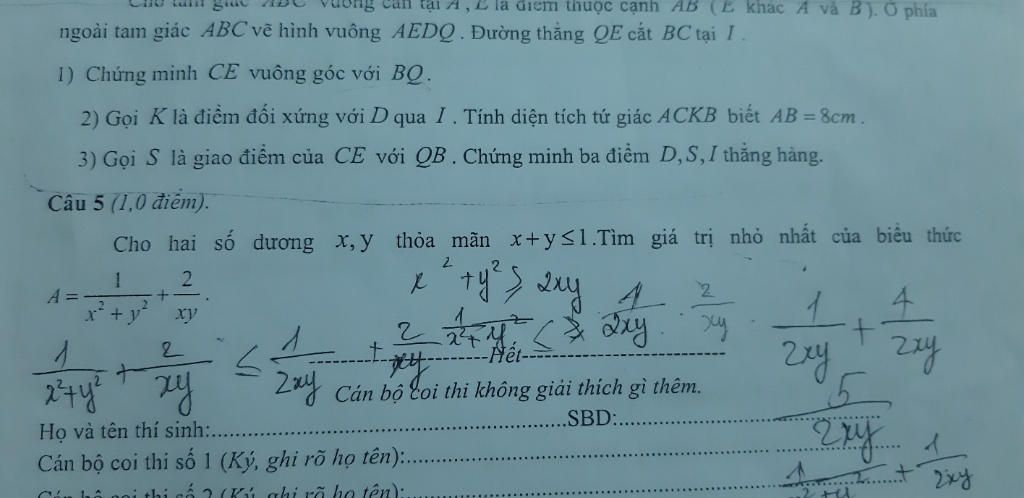 Cho tam giác ABC vuông cân tại A, E là điểm thuộc cạnh AB (E khác A và B). Ở phía
ngoài tam giác ABC vẽ hình vuông AEDQ. Đường thẳng QE cắt BC tại I.
1) Chứng minh CE vuông góc với BQ.
2) Gọi K là điểm đối xứng với D qua I. Tính diện tích tứ giác ACKB biết AB = 8cm.
3) Gọi S là giao điểm của CE với QB. Chứng minh ba điểm D, S, I thẳng hàng.
Câu 5 (1,0 điểm).
Cho hai số dương x, y thỏa mãn x+y≤1. Tìm giá trị nhỏ nhất của biểu thức
A = 1/(x²+y²) + 2/(xy).
x²+y² ≥ 2xy
1/(x²+y²) ≤ 1/(2xy) · 2/(xy)
1/(2xy) + 4/(2xy)
1/(x²+y²) + 2/(xy) ≤ 1/(2xy) + 2/(xy)
Hết
5/(2xy)
Cán bộ coi thi không giải thích gì thêm.
Họ và tên thí sinh: SBD:
Cán bộ coi thi số 1 (Ký, ghi rõ họ tên):
1/(x²+y²) + 1/(2xy)
Cán bộ coi thi số 2 (Ký, ghi rõ họ tên):